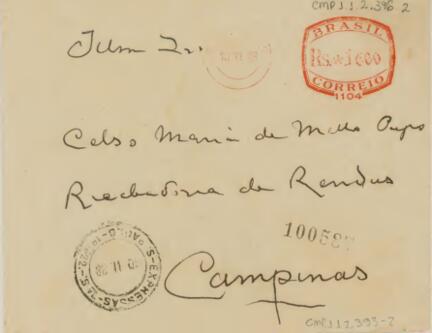 CMP.1.1.2.396-2
Ilmo Snr.
BRASIL
Rs.*1600
CORREIO
1104
Celso Maria de Mello Pupo
Recebedoria de Rendas
100587
Campinas
S. EXPRESSAS
CMP.1.1.2.395-2